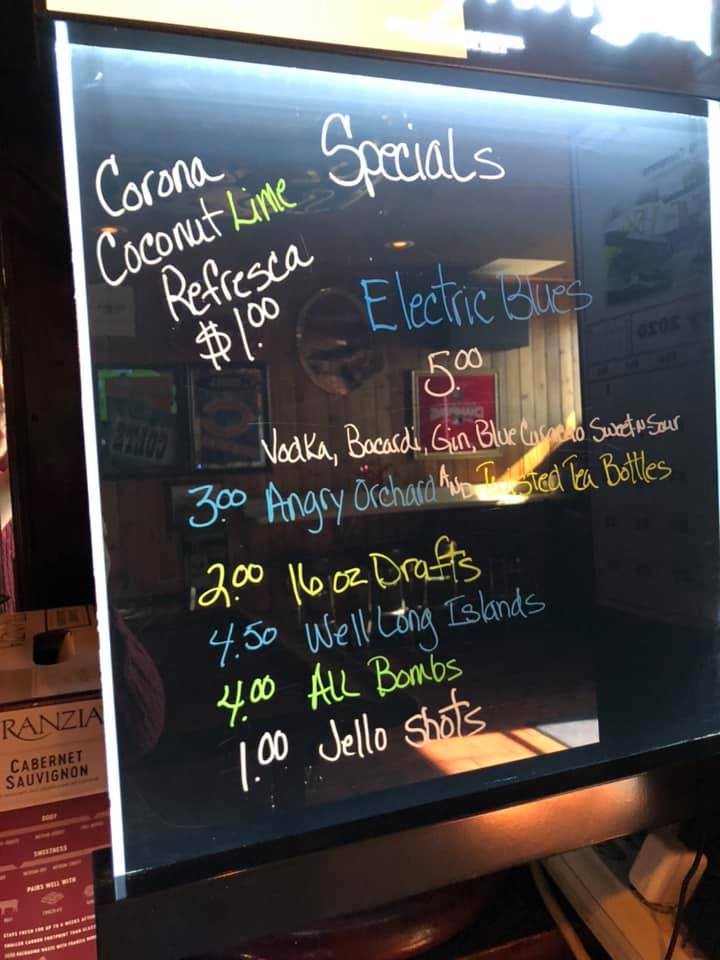 Specials
Corona
Coconut Lime
Refresca
$1.00
Electric Blues
5.00
Vodka, Bacardi, Gin, Blue Curacao Sweet N Sour
3.00 Angry Orchard AND Twisted Tea Bottles
2.00 16 oz Drafts
4.50 Well Long Islands
4.00 ALL Bombs
1.00 Jello Shots
RANZIA
CABERNET
SAUVIGNON
BODY
SWEETNESS
PAIRS WELL WITH